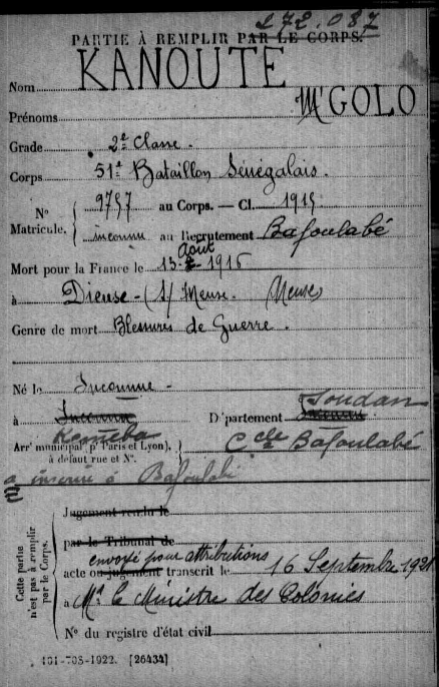 172.087
PARTIE À REMPLIR PAR LE CORPS.
Nom KANOUTE
Prénoms M'GOLO
Grade 2e Classe.
Corps 51e Bataillon Sénégalais.
N° Matricule. { 9757 au Corps. — Cl. 1915
inconnu au Recrutement Bafoulabé
Mort pour la France le 13 Août 1916
à Dieuse - (s/ Meuse. Meuse
Genre de mort Blessures de Guerre.
Né le Inconnue -
à Inconnu Kéniéba D'partement Inconnu Soudan
Arr' municipal (p' Paris et Lyon), à défaut rue et N°. } Ccle Bafoulabé
a inscrire à Bafoulabé
Cette partie n'est pas à remplir par le Corps. { Jugement rendu le
par le Tribunal de
envoyé pour attributions
acte ou jugement transcrit le 16 Septembre 1921
à Mr le Ministre des Colonies
N° du registre d'état civil
101-703-1922. [26434]